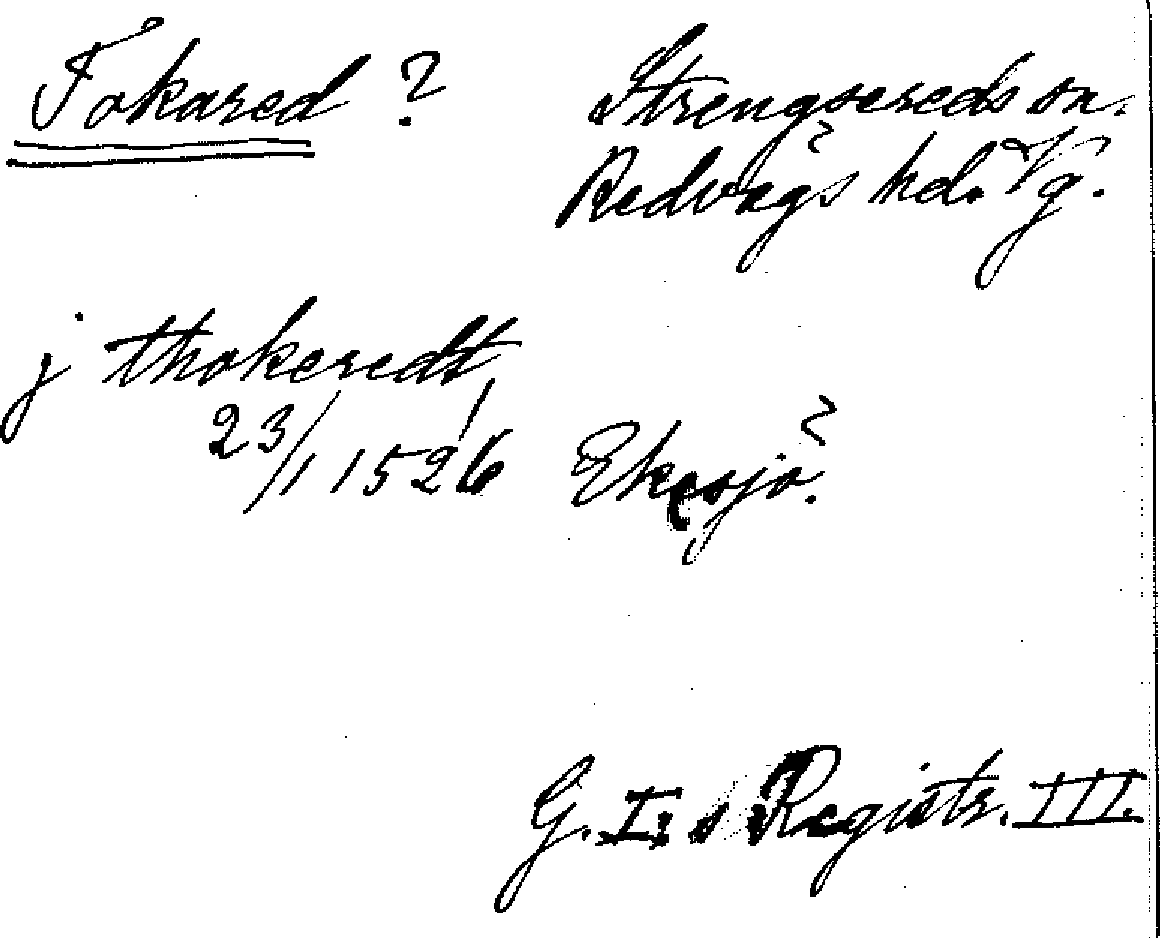 Tokared ? Strengsereds sn.
Redvägs hd. Vg.
j thokeredt
23/1 1526 Eksjö.
G. I:s Registr. III.